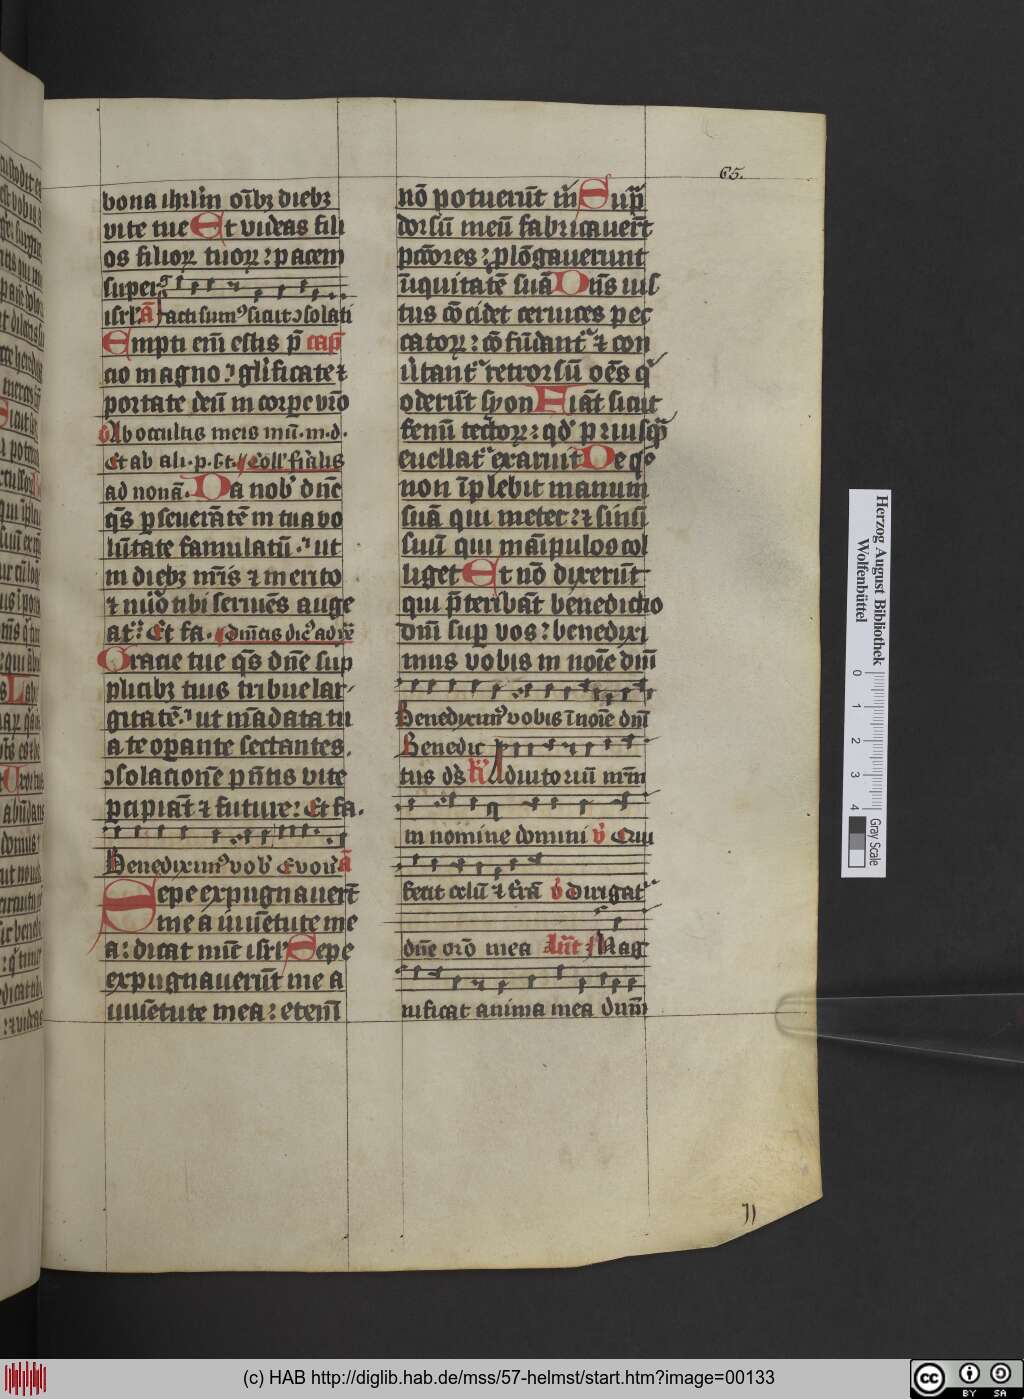 65.
bona ihrl'm oībȝ diebȝ
vite tue Et videas fili
os filioꝝ tuoꝝ : pacem
super
isrl' A Facti sumꝰ sicut ↄsolati
Empti eni estis p̄ cap̄
cio magno : gl'ificate ⁊
portate deū in corpe vr̄o
v Ab occultis meis mū·m·d·
Et ab ali·p·s·t· Coll' fīalis
ad nonā· Da nob' dn̄e
qs̄ pseuerātē in tua vo
lūtate famulatū ·' ut
in diebȝ nr̄is ⁊ merito
⁊ nūo tibi seruiēs auge
at' : Et fa. dn̄icis dic' ad
Gracie tue qs̄ dn̄e sup
plicibȝ tuis tribue lar
gitatē ·' ut mādata tu
a te opante sectantes·
ↄsolacionē pn̄tis vite
pcipiāt ⁊ future : Et fa·
Benediximꝰ vob' Evou' a
Sepe expugnauert̄
me a iuuētute me
a : dicat nūc isrl' Sepe
expugnauerūt me a
iuuētute mea : etenī
nō potuerūt m' Sup̄
dorsū meū fabricauer̄t
pctōres : plōgauerunt
iniquitatē suā Dn̄s ius
tus cōcidet ceruices pec
catoꝝ : cōfūdant' ⁊ con
u'tant' retrorsū oēs q'
oderūt syon Fiāt sicut
fenū tectoꝝ : qd' priusq̄
euellat' exaruit De qo
non īplebit manum
suā qui metet : ⁊ sinū
suū qui māipulos col
liget Et nō dixerūt
qui p̄teribāt benedictio
dn̄i sup vos : benedixi
mus vobis in noīe dn̄i
Benediximꝰ vobis ī noīe dn̄i
Benedic
tus ds̄ Adiutoriū nr̄m
in nomine domini v Qui
fecit celū ⁊ t'rā v Dirigat'
dn̄e orō mea Mag
nificat anima mea dūm
71
Herzog August Bibliothek
Wolfenbüttel
0 1 2 3 4
Gray Scale
(c) HAB http://diglib.hab.de/mss/57-helmst/start.htm?image=00133
cc BY SA